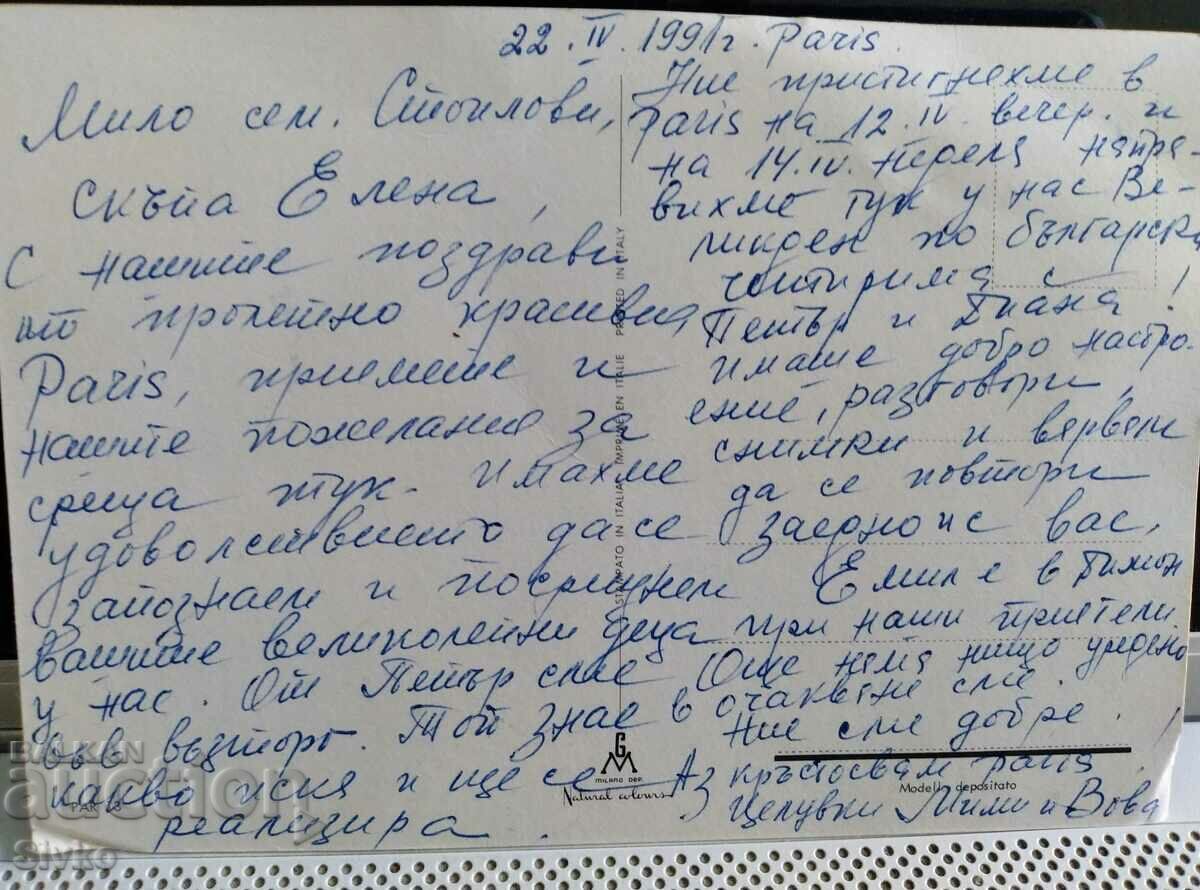 22. IV. 1991г. Paris.
Мило сем. Стоилови,
скъпа Елена,
с нашите поздрави
из пролетно красивия
Paris, приемете и
нашите пожелания за
среща тук. Имахме
удоволствието да се
запознаем и посрещнем
вашите великолепни деца
у нас. От Петър сме
във възторг. Той знае
какво иска и ще се
реализира.
Ние пристигнехме в
Paris на 12. IV. вечер. и
на 14. IV. неделя напра-
вихме тук у нас Ве-
ликден по българско
четирима с
Петър и Диана!
Имаше добро настро-
ение, разговори,
снимки и вярвам
да се повтори
заедно и с вас.
Емил е в
при наши приетели.
Още няма нищо уредено
в очакване сме.
Ние сме добре.
Аз кръстосвам Paris
Целувки Мими и Вова
STAMPATO IN ITALIA IMPRIME EN ITALIE PRINTED IN ITALY
G
M
MILANO DEP.
Natural colours
Modello depositato
PAR
BALKAN
auction
Slyko